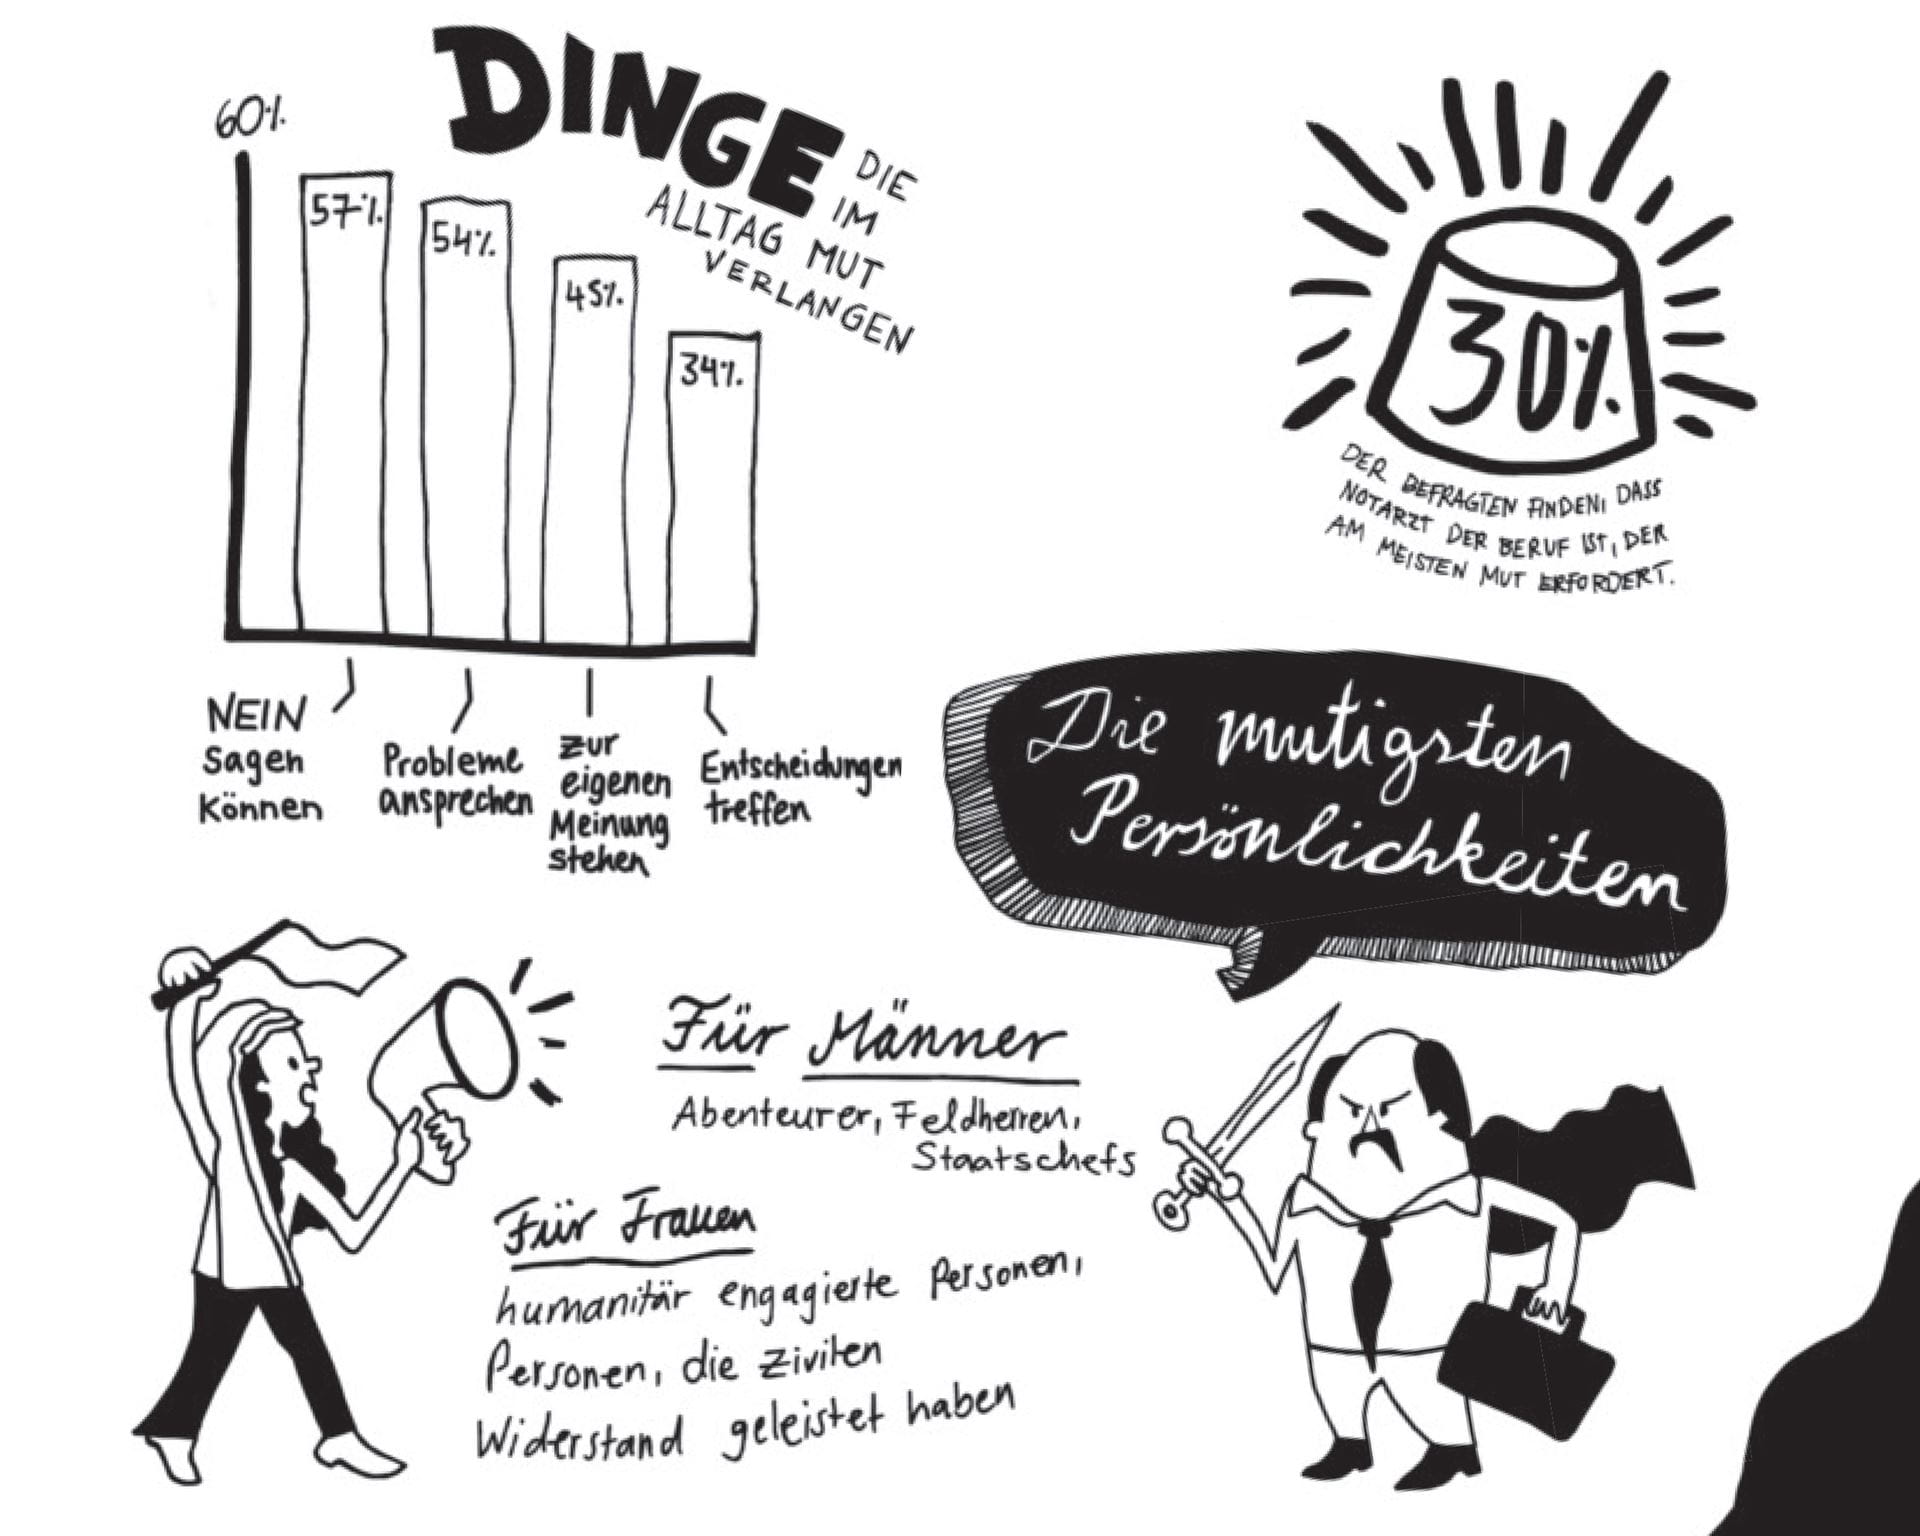 DINGE DIE
IM
ALLTAG MUT
VERLANGEN
60%
57%
54%
45%
34%
NEIN
sagen
können
Probleme
ansprechen
zur
eigenen
Meinung
stehen
Entscheidungen
treffen
30%
DER BEFRAGTEN FINDEN, DASS
NOTARZT DER BERUF IST, DER
AM MEISTEN MUT ERFORDERT.
Die mutigsten
Persönlichkeiten
Für Männer
Abenteurer, Feldherren,
Staatschefs
Für Frauen
humanitär engagierte Personen,
Personen, die zivilen
Widerstand geleistet haben